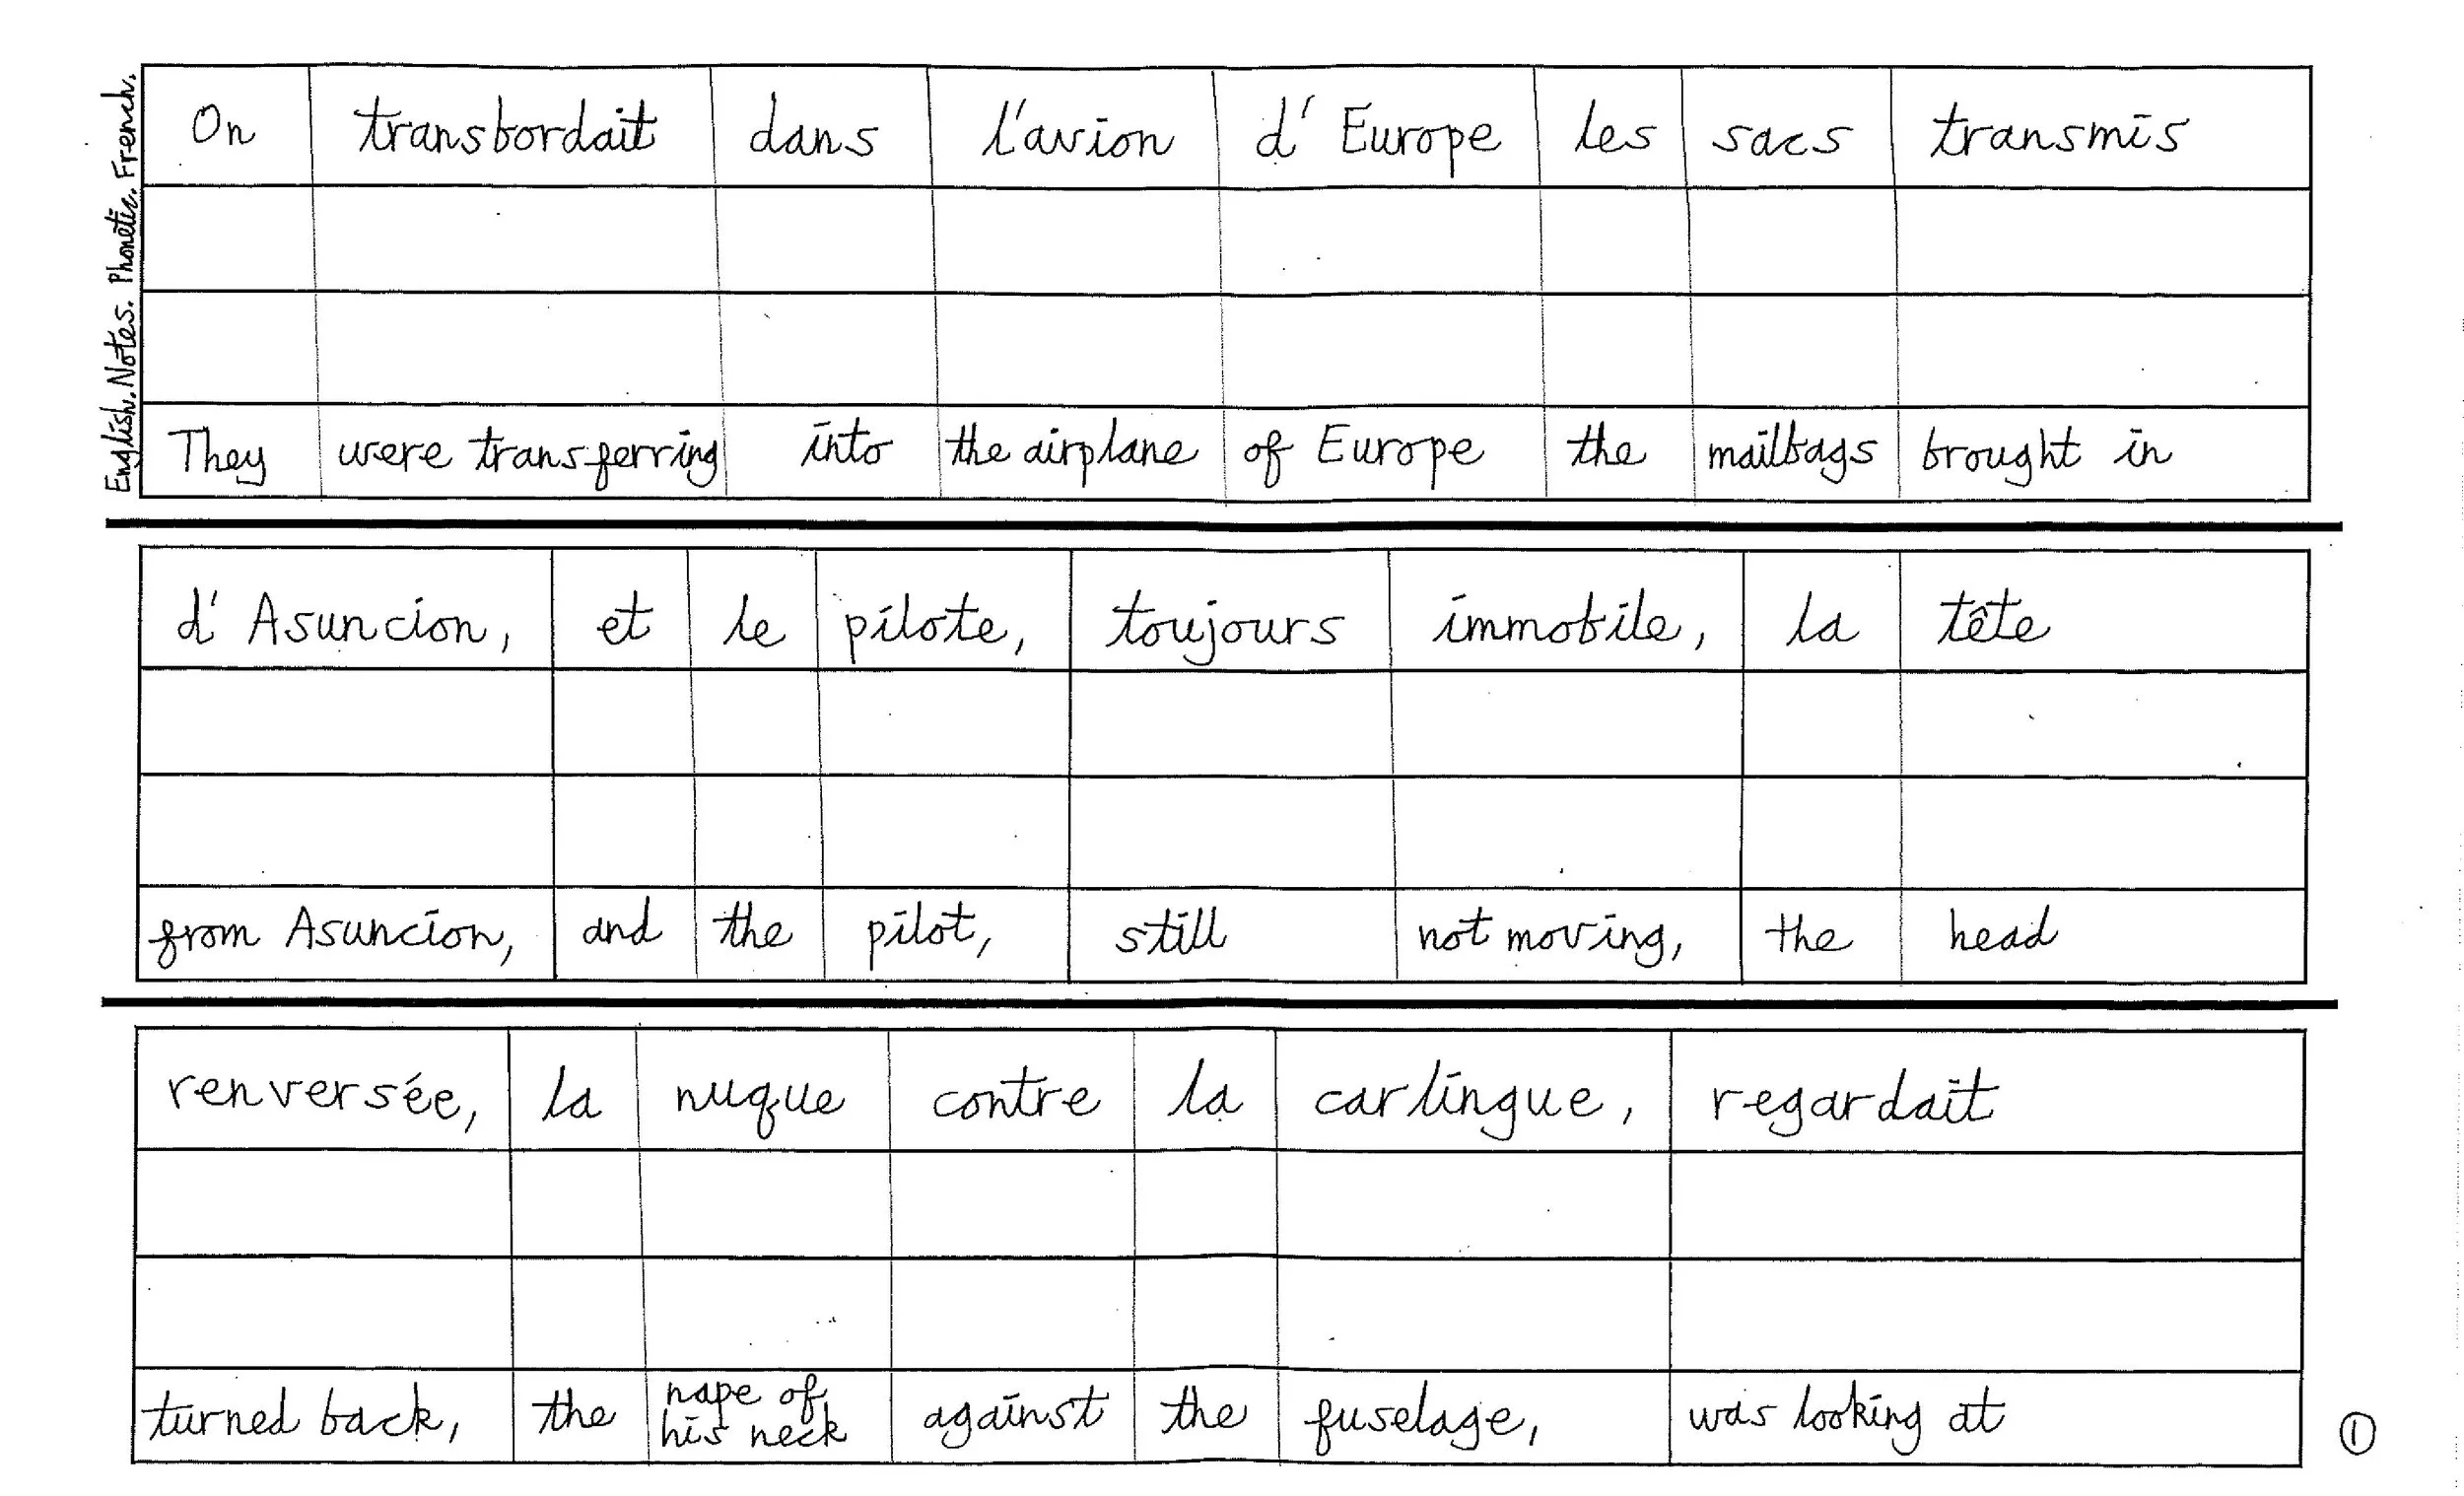 English. Notes. Phonetic. French.
On transbordait dans l'avion d'Europe les sacs transmis
They were transferring into the airplane of Europe the mailbags brought in
d'Asuncion, et le pilote, toujours immobile, la tête
from Asuncion, and the pilot, still not moving, the head
renversée, la nuque contre la carlingue, regardait
turned back, the nape of his neck against the fuselage, was looking at
1